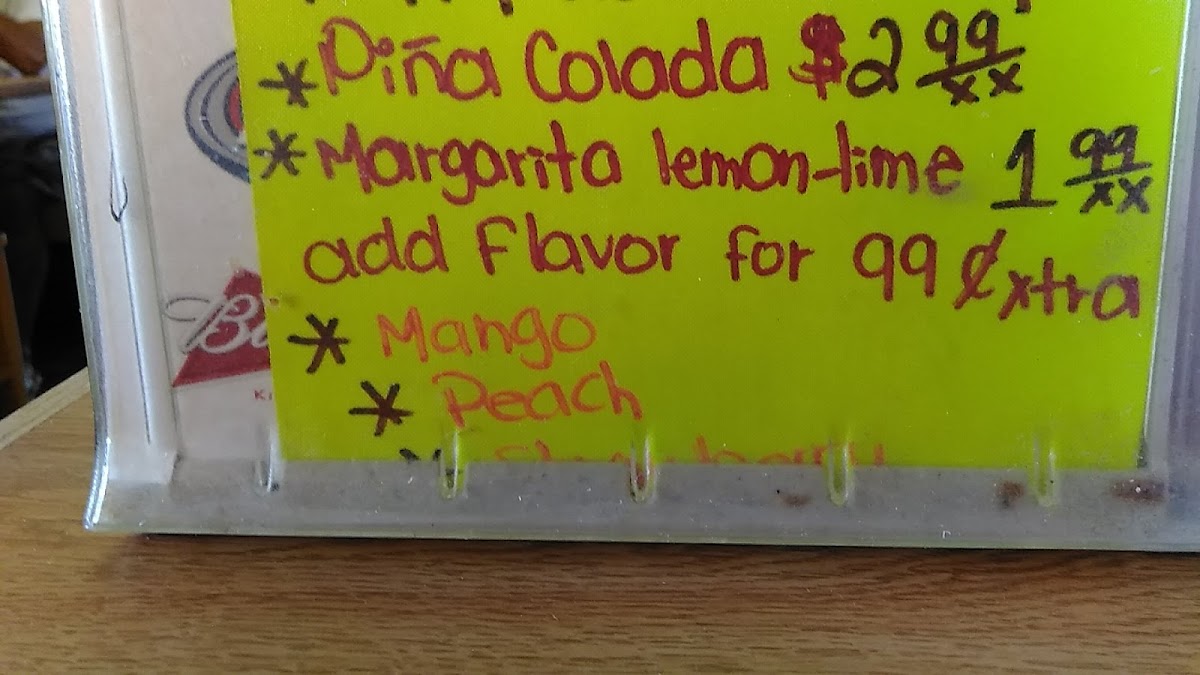 * Piña Colada $2 99/xx
* Margarita lemon-lime 1 99/xx
add Flavor for 99 ¢xtra
* Mango
* Peach